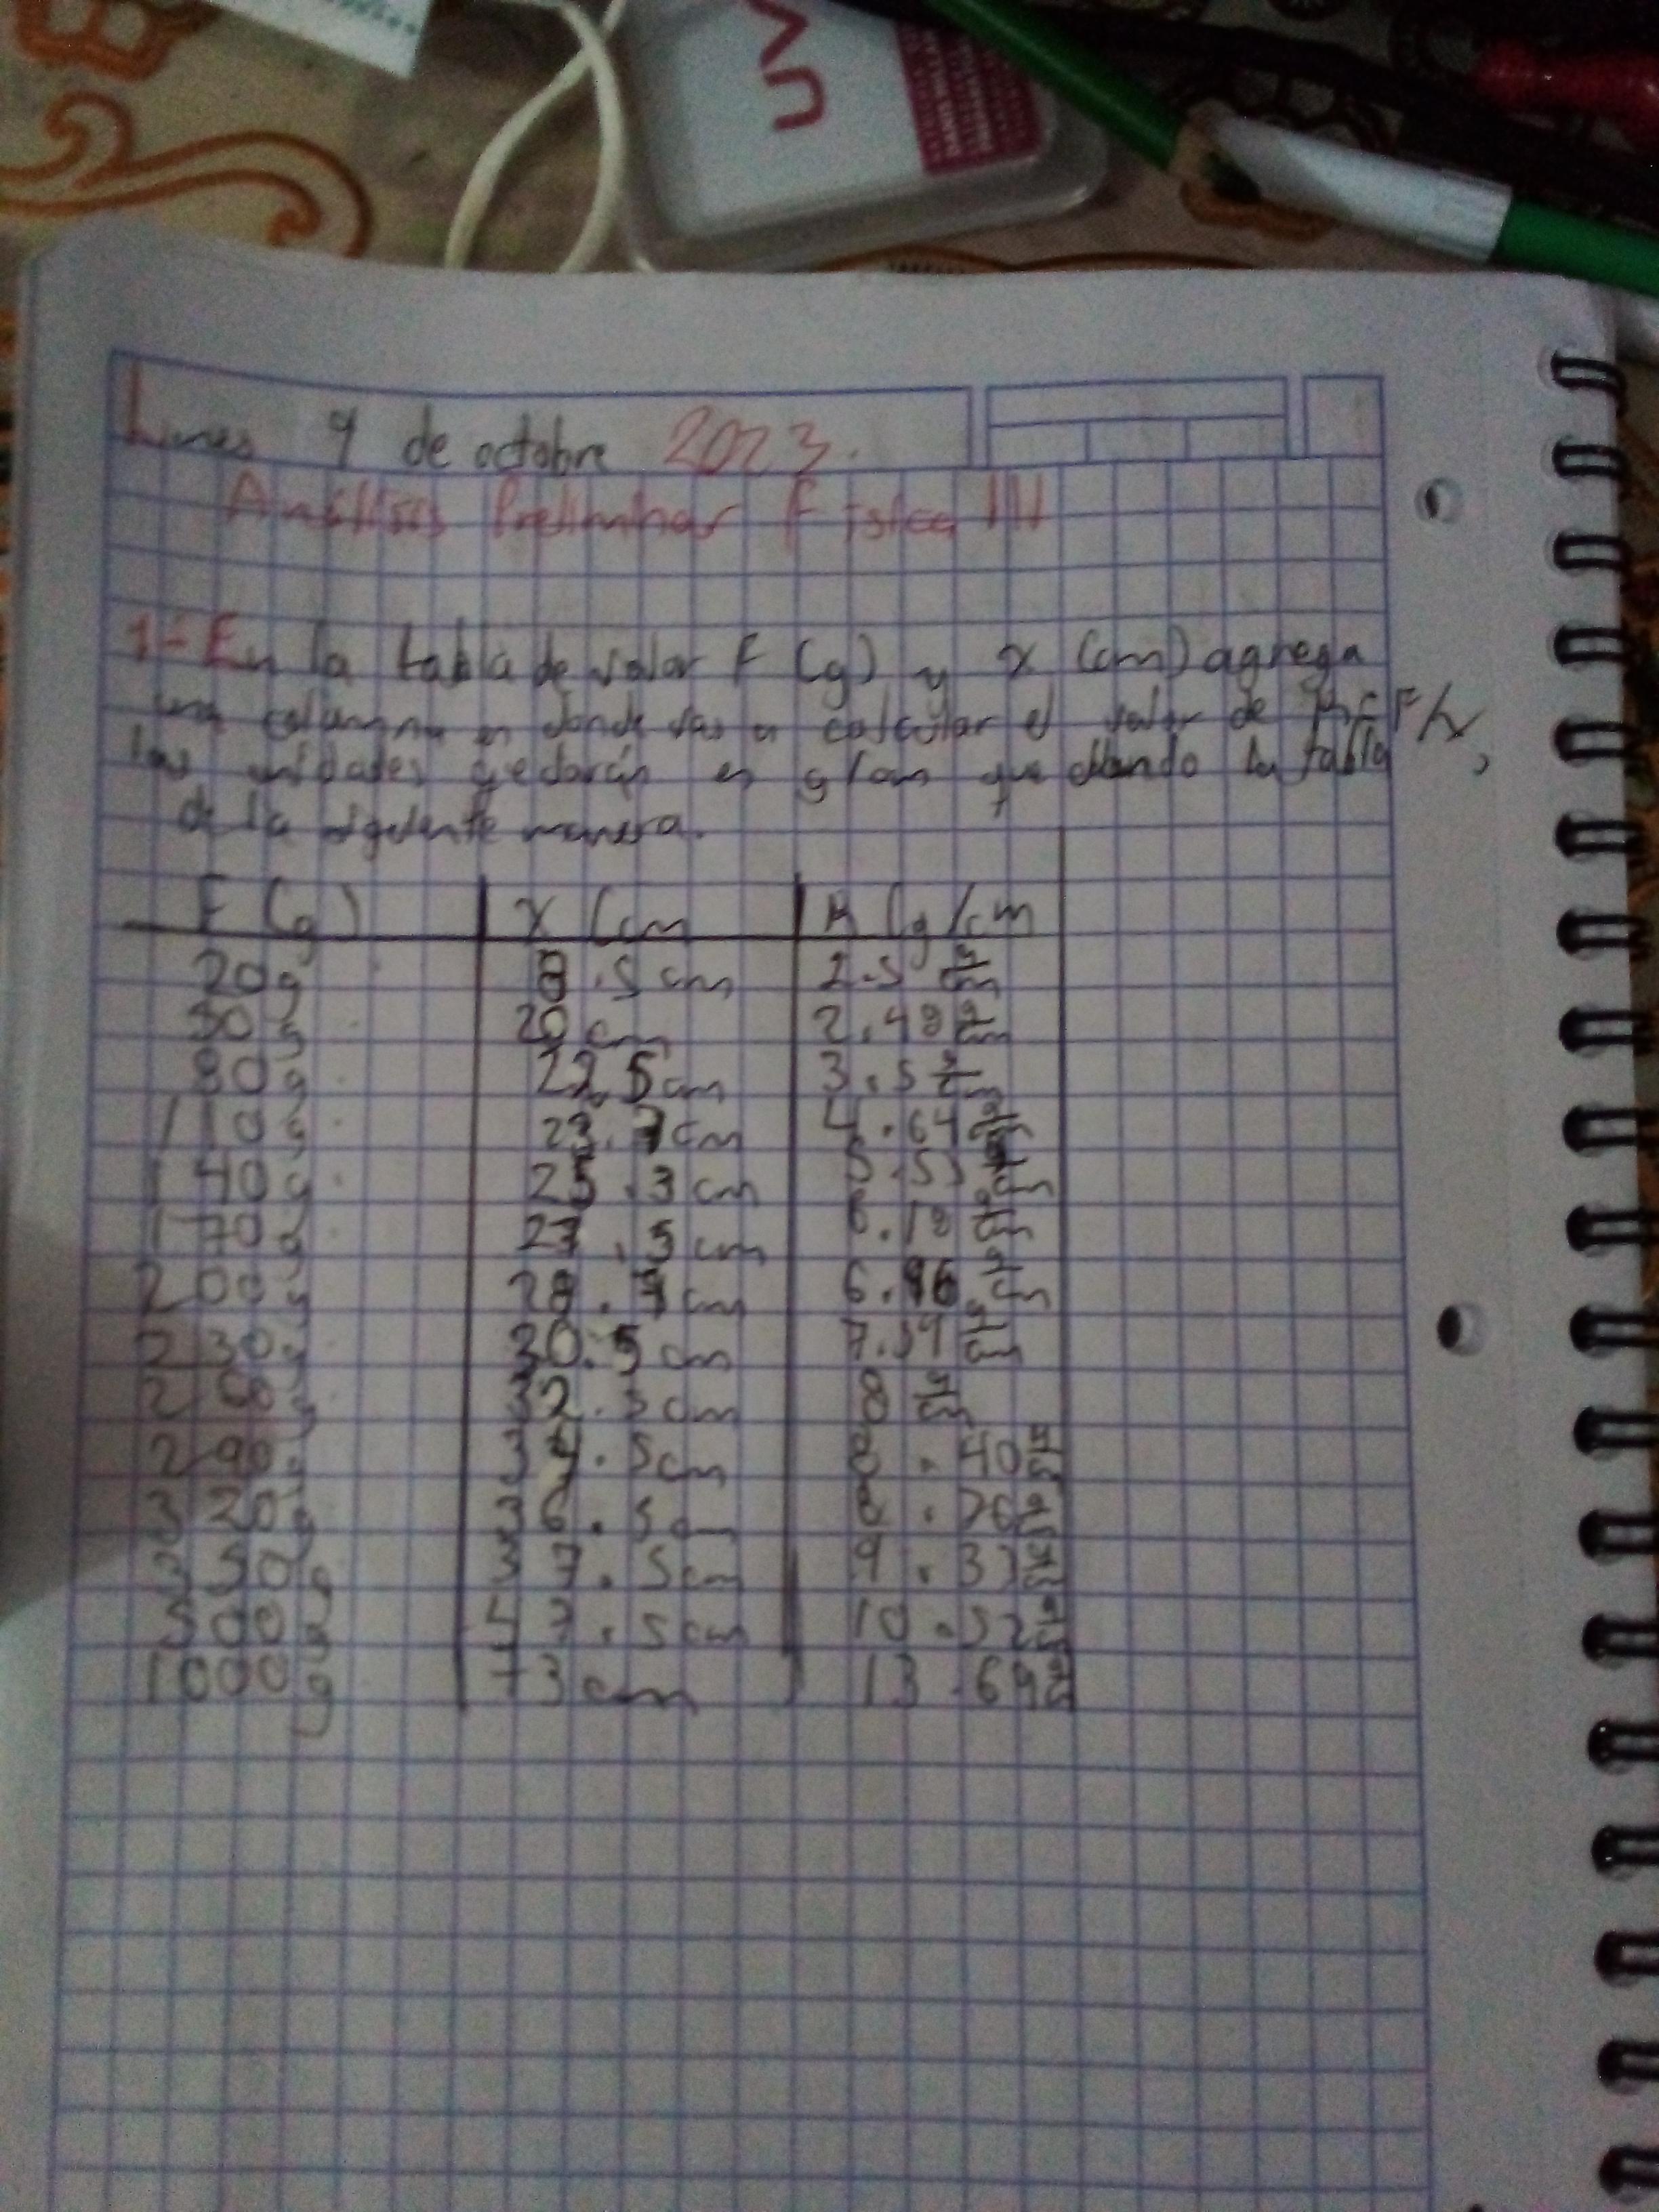 UV
Lunes 9 de octubre 2023.
Análisis Preliminar Física III
1-En la tabla de valor F (g) y x (cm) agrega
una columna en donde vas a calcular el valor de K=F/x,
las unidades qedarán en g/cm quedando la tabla
de la sigelente manera.
F (g) x (cm K (g/cm
20g 8.5cm 2.5 g/cm
50g 20cm 2.48 g/cm
80g 22.5cm 3.5 g/cm
110g 23.7cm 4.64 g/cm
140g 25.3cm 5.53 g/cm
170g 27.5cm 6.18 g/cm
200g 28.7cm 6.96 g/cm
230g 30.5cm 7.54 g/cm
260g 32.5cm 8 g/cm
290g 34.5cm 8.40 g/cm
320g 36.5cm 8.76 g/cm
350g 37.5cm 9.33 g/cm
500g 47.5cm 10.52 g/cm
1000g 73cm 13.69 g/cm